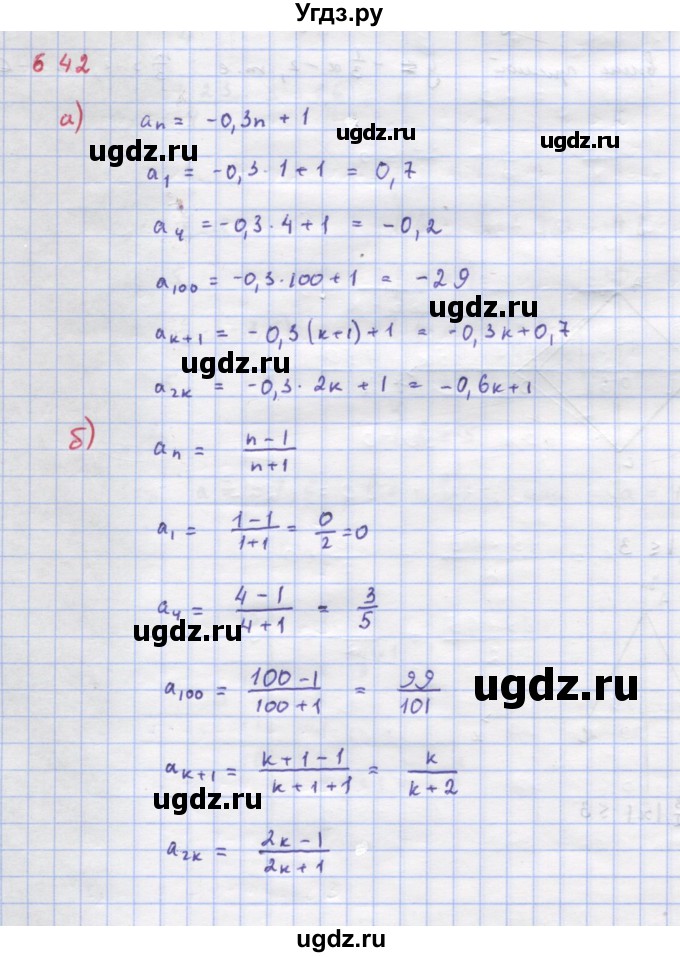 Угдз.ру
642
а) aₙ = -0,3n + 1
ugdz.ru
ugdz.ru
ugdz.ru
a₁ = -0,3 · 1 + 1 = 0,7
a₄ = -0,3 · 4 + 1 = -0,2
a₁₀₀ = -0,3 · 100 + 1 = -29
ugdz.ru
aₖ₊₁ = -0,3(k+1) + 1 = -0,3k + 0,7
ugdz.ru
a₂ₖ = -0,3 · 2k + 1 = -0,6k + 1
б) aₙ = (n - 1)/(n + 1)
a₁ = (1 - 1)/(1 + 1) = 0/2 = 0
a₄ = (4 - 1)/(4 + 1) = 3/5
ugdz.ru
a₁₀₀ = (100 - 1)/(100 + 1) = 99/101
ugdz.ru
aₖ₊₁ = (k + 1 - 1)/(k + 1 + 1) = k/(k + 2)
ugdz.ru
a₂ₖ = (2k - 1)/(2k + 1)
ugdz.ru